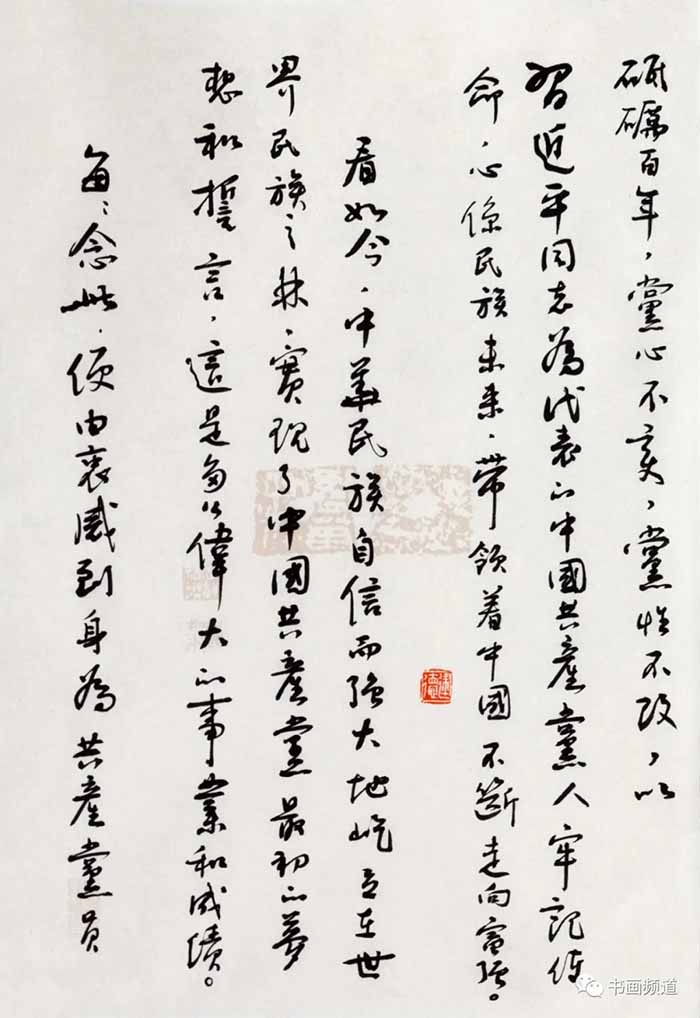 砥礪百年，黨心不變，黨性不改，以
習近平同志為代表的中國共產黨人牢記使
命，心係民族未來，帶領着中國不斷走向富強。
看如今，中華民族自信而強大地屹立在世
界民族之林，實現了中國共產黨最初的夢
想和誓言，這是多麼偉大的事業和成績。
每每念此，便由衷感到身為共產黨員
书画频道